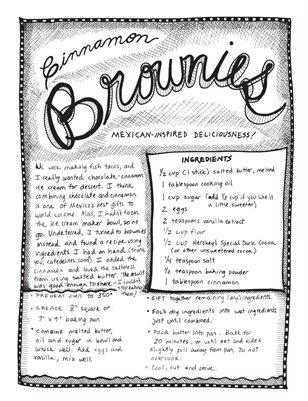 Cinnamon
Brownies
MEXICAN-INSPIRED DELICIOUSNESS!
WE were making fish tacos, and
I really wanted chocolate-cinnamon
ice cream for dessert. I think
combining chocolate and cinnamon
is one of Mexico's best gifts to
world cuisine. Alas, I hadn't frozen
the ice cream maker bowl, so no
go. Undeterred, I turned to brownies
instead, and found a recipe using
ingredients I had on hand (thank
you, cafedelites.com!) I added the
cinnamon and loved the saltiness
from using salted butter. The result
was good enough to share - I couldn't
INGREDIENTS
1/2 cup (1 stick) salted butter, melted
1 tablespoon cooking oil
1 cup sugar (add 1/8 cup if you like it
a little sweeter)
2 eggs
2 teaspoons vanilla extract
1/2 cup flour
1/2 cup Hershey's Special Dark Cocoa
(or other unsweetened cocoa)
1/4 teaspoon salt
1/2 teaspoon baking powder
1 tablespoon cinnamon
• PREHEAT oven to 350°
• GREASE 8" square or
7" x 9" baking pan
• COMBINE melted butter,
oil and sugar in bowl and
whisk well. Add eggs and
vanilla, mix well.
• SIFT together remaining (dry) ingredients.
• FOLD dry ingredients into wet ingredients
just until combined.
• POUR batter into pan. Bake for
20 minutes, or until set and sides
slightly pull away from pan. Do not
overcook.
• Cool, cut and serve.